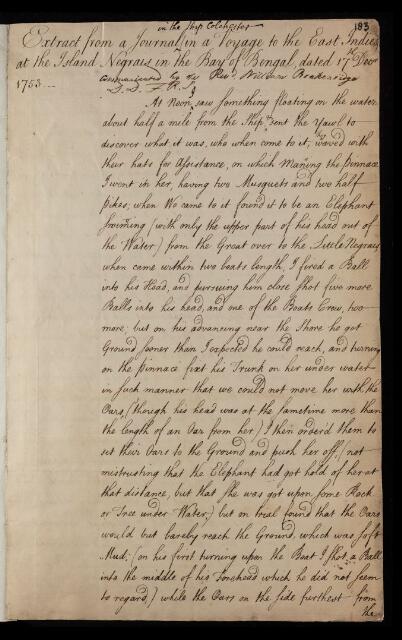 183
in the Ship Colchester
Extract from a Journal in a Voyage to the East Indies
at the Island Negrais in the Bay of Bengal, dated 17th Decr
communicated by ye Revd. William Brakenridge
1753 D.D. F.R.S.
At Noon saw something floating on the water
about half a mile from the Ship & sent the Yawl to
discover what it was, who when come to it, waved with
their hats for Assistance, on which Maning the Pinnace
I went in her, having two Musquets and two half
Pikes; when We came to it found it to be an Elephant
swiming (with only the upper part of his head out of
the Water) from the Great over to the Little Negrais
when came within two boats length, I fired a Ball
into his Head, and pursuing him close shot five more
Balls into his head, and one of the Boats Crew, two
more; but on his advancing near the Shore he got
Ground sooner than I expected he could reach, and turning
on the Pinnace fixt his Trunk on her under water
in such manner that we could not move her with the
Oars, (though his head was at the sametime more than
the length of an Oar from her) I then order'd them to
set their Oars to the Ground and push her off, (not
mistrusting that the Elephant had got hold of her at
that distance, but that she was got upon some Rock
or Tree under Water,) but on trial found that the Oars
would but barely reach the Ground, which was soft
Mud; (on his first turning upon the Boat I shot a Ball
into the middle of his Forehead which he did not seem
to regard,) while the Oars on the side furthest from
the